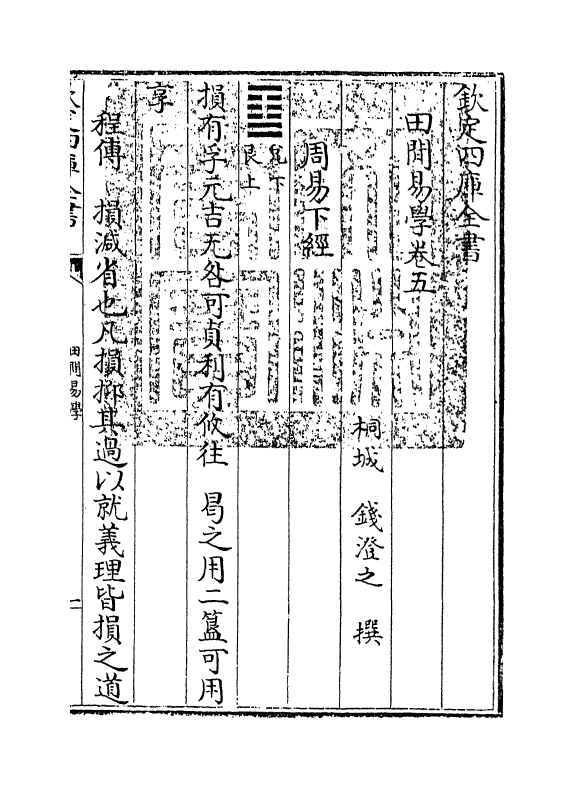 欽定四庫全書
田間易學卷五
桐城 錢澄之 撰
周易下經
兌下
艮上
損有孚元吉无咎可貞利有攸往 曷之用二簋可用
享
程傳 損減省也凡損抑其過以就義理皆損之道
田間易學
一